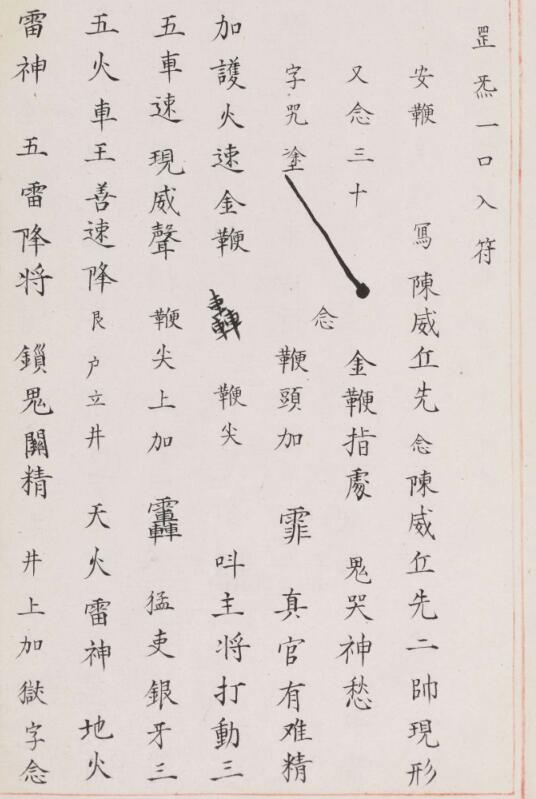 罡炁一口入符
安鞭 寫陳威丘先念陳威丘先二帥現形
又念三十 金鞭指處 鬼哭神愁
字咒塗 念鞭頭加 霏 真官有难精
加護火速金鞭 鞭尖 呌主将打動三
五車速現威聲 鞭尖上加 猛吏銀牙三
五火車王善速降艮户立井 天火雷神 地火
雷神 五雷降将 鎖鬼關精 井上加獄字念